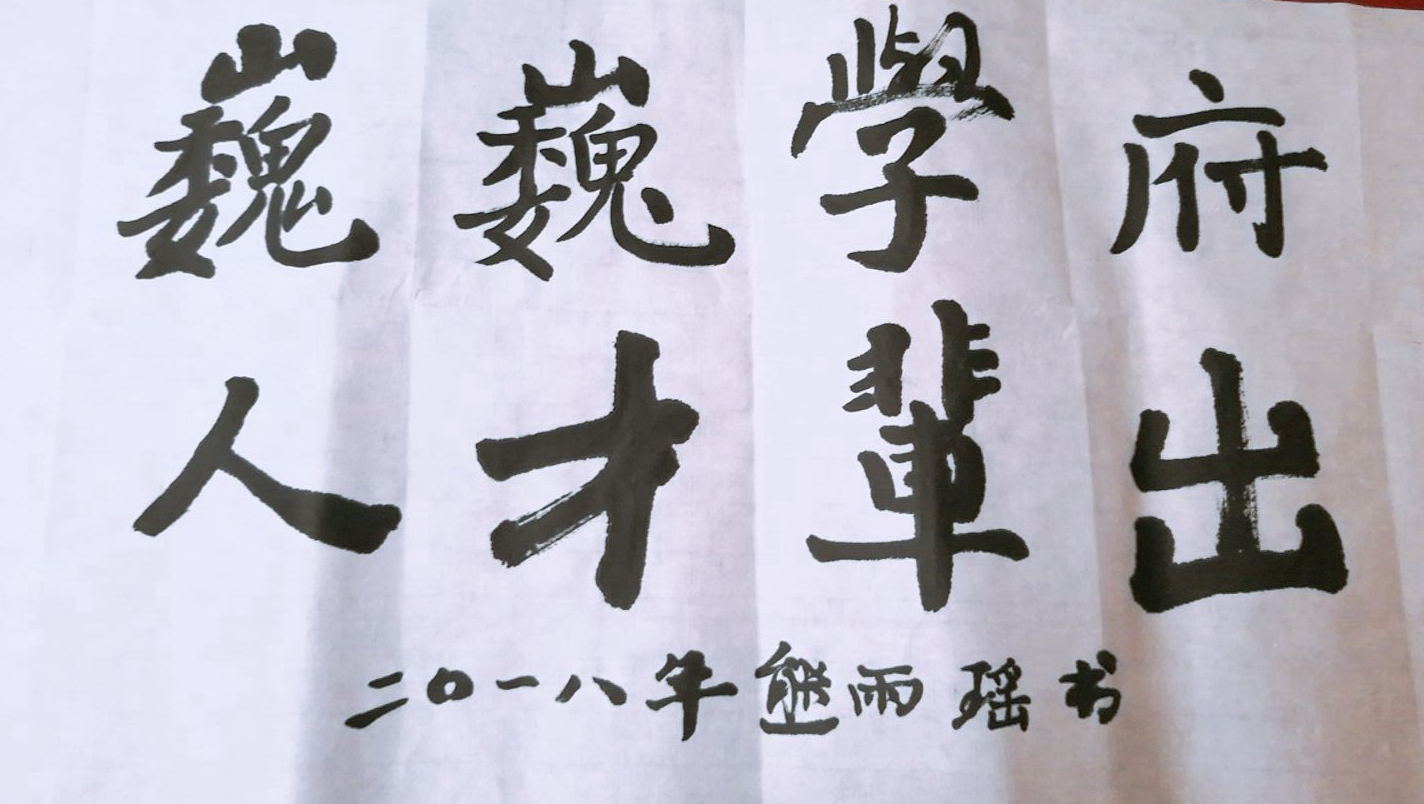 巍巍學府
人才輩出
二〇一八年熊雨瑶书